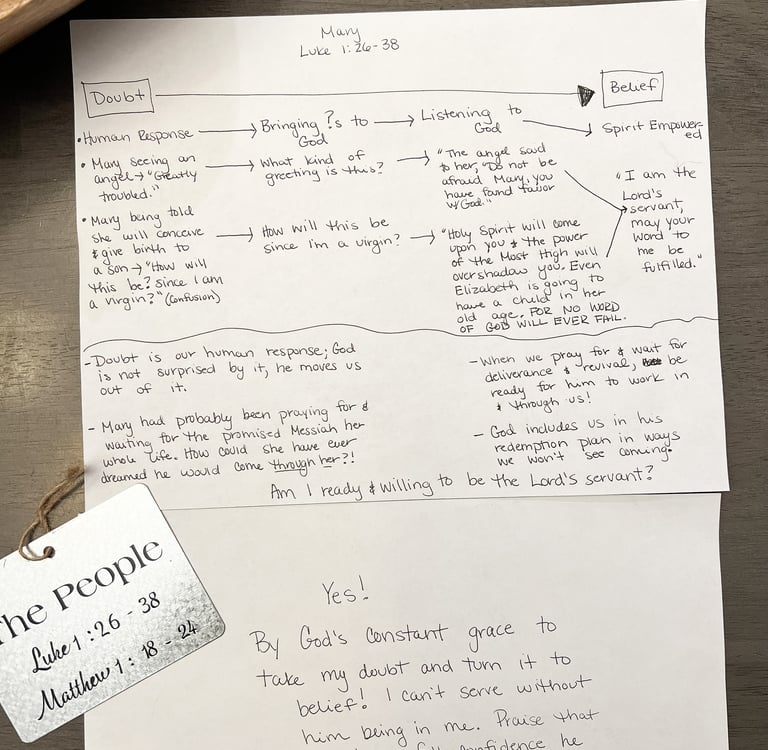 Mary
Luke 1:26-38
Doubt
Belief
• Human Response
Bringing ?s to
God
Listening to
God
Spirit Empower-
ed
• Mary seeing an
angel → "Greatly
troubled."
What kind of
greeting is this?
"The angel said
to her, "Do not be
afraid Mary, you
have found favor
w/God."
"I am the
Lord's
servant,
may your
word to
me be
fulfilled."
• Mary being told
she will conceive
& give birth to
a son → "How will
this be? since I am
a virgin?" (confusion)
How will this be
since i'm a virgin?
"Holy Spirit will come
upon you & the power
of the Most High will
overshadow you. Even
Elizabeth is going to
have a child in her
old age. FOR NO WORD
OF GOD WILL EVER FAIL.
- Doubt is our human response; God
is not surprised by it, he moves us
out of it.
- Mary had probably been praying for &
waiting for the promised Messiah her
whole life. How could she have ever
dreamed he would come through her?!
- When we pray for & wait for
deliverance & revival, be
ready for him to work in
& through us!
- God includes us in his
redemption plan in ways
we won't see coming.
Am I ready & willing to be the Lord's servant?
The People
Luke 1:26 - 38
Matthew 1: 18 - 24
Yes!
By God's constant grace to
take my doubt and turn it to
belief! I can't serve without
him being in me. Praise that
confidence he